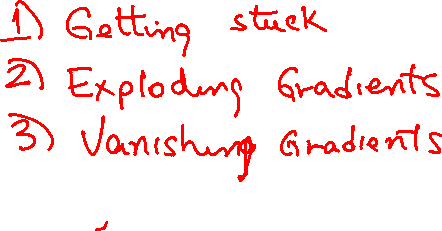 1) Getting stuck
2) Exploding Gradients
3) Vanishing Gradients